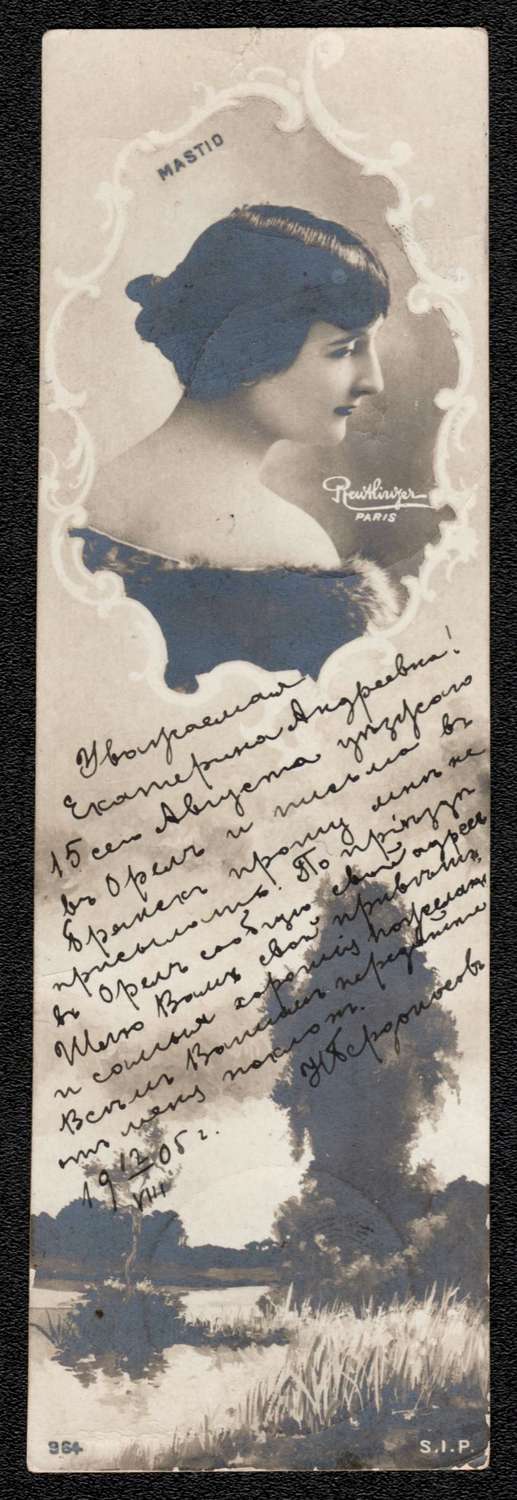 MASTIO
Reutlinger
PARIS
Уважаемая
Екатерина Андреевна!
15 сего Августа уѣзжаю
въ Орелъ и письма въ
Брянскъ прошу мнѣ не
присылать. По пріѣздѣ
въ Орелъ сообщу свой адресъ
Шлю Вамъ свой привѣтъ
и самыя хорошія пожелан.
Всѣмъ Вашимъ передайте
отъ меня поклонъ.
19 12/VIII 05 г.
964
S.I.P.